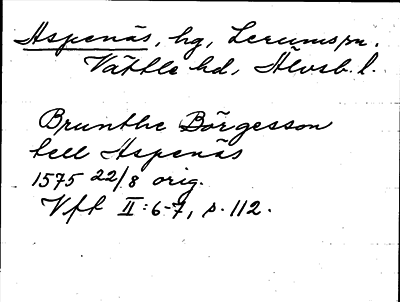 Aspenäs, hg, Lerums sn.
Vättle hd, Älvsb. l.
Brunthe Börgesson
tell Aspenäs
1575 22/8 orig.
Vff II:6-7, s. 112.